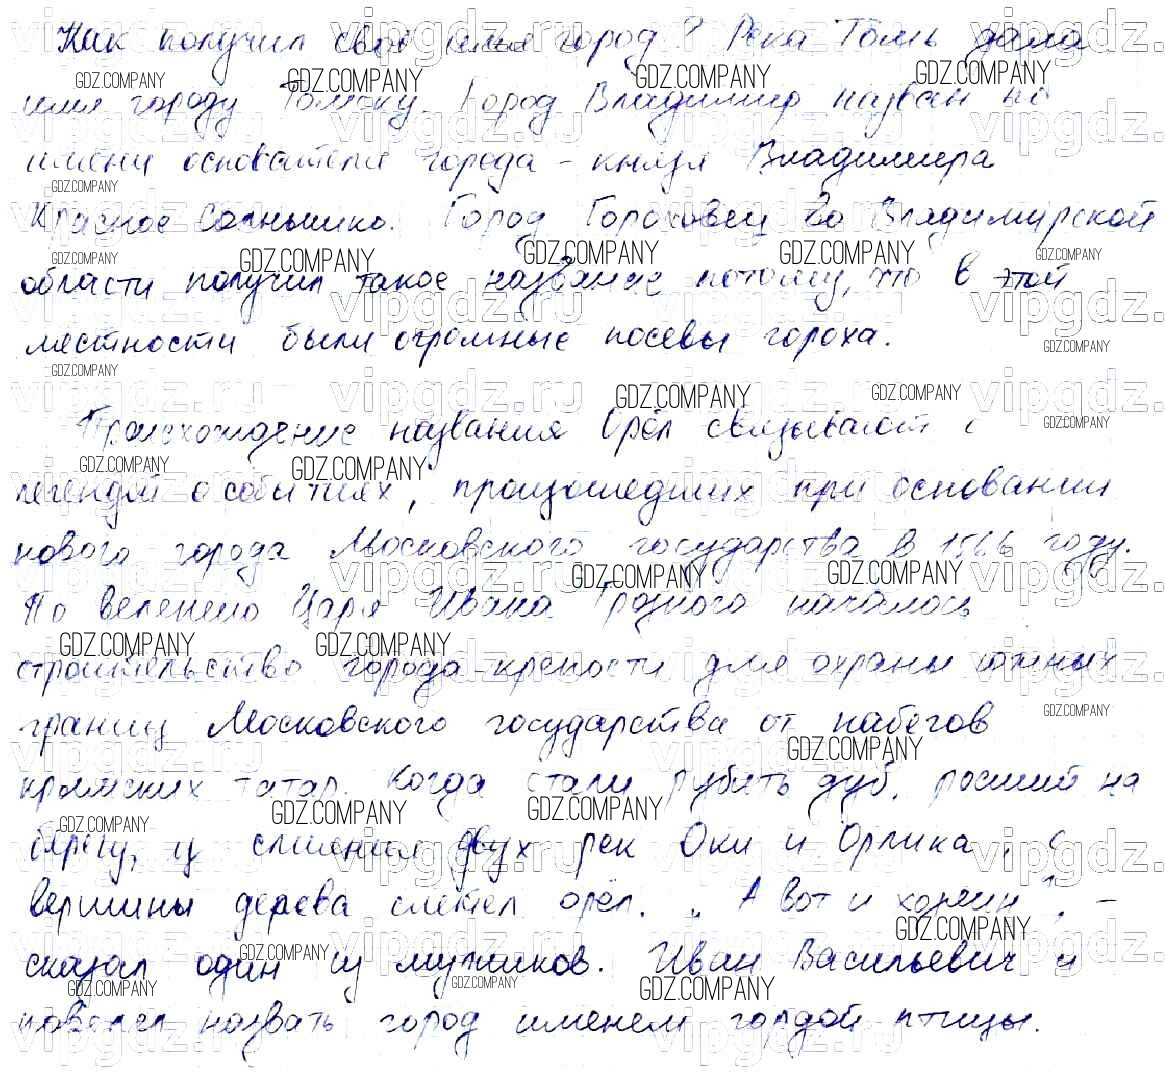 Как получил своё имя город? Река Томь дала
имя городу Томску. Город Владимир назван по
имени основателя города - князя Владимира
Красное Солнышко. Город Гороховец во Владимирской
области получил такое название потому, что в этой
местности были огромные посевы гороха.
Происхождение названия Орёл связывают с
легендой о событиях, произошедших при основании
нового города Московского государства в 1566 году.
По велению Царя Ивана Грозного началось
строительство города-крепости для охраны южных
границ Московского государства от набегов
крымских татар. Когда стали рубить дуб, росший на
берегу, у слияния двух рек Оки и Орлика, с
вершины дерева слетел орёл. „А вот и хозяин", -
сказал один из мужиков. Иван Васильевич и
повелел назвать город именем гордой птицы.
GDZ.COMPANY
vipgdz.ru